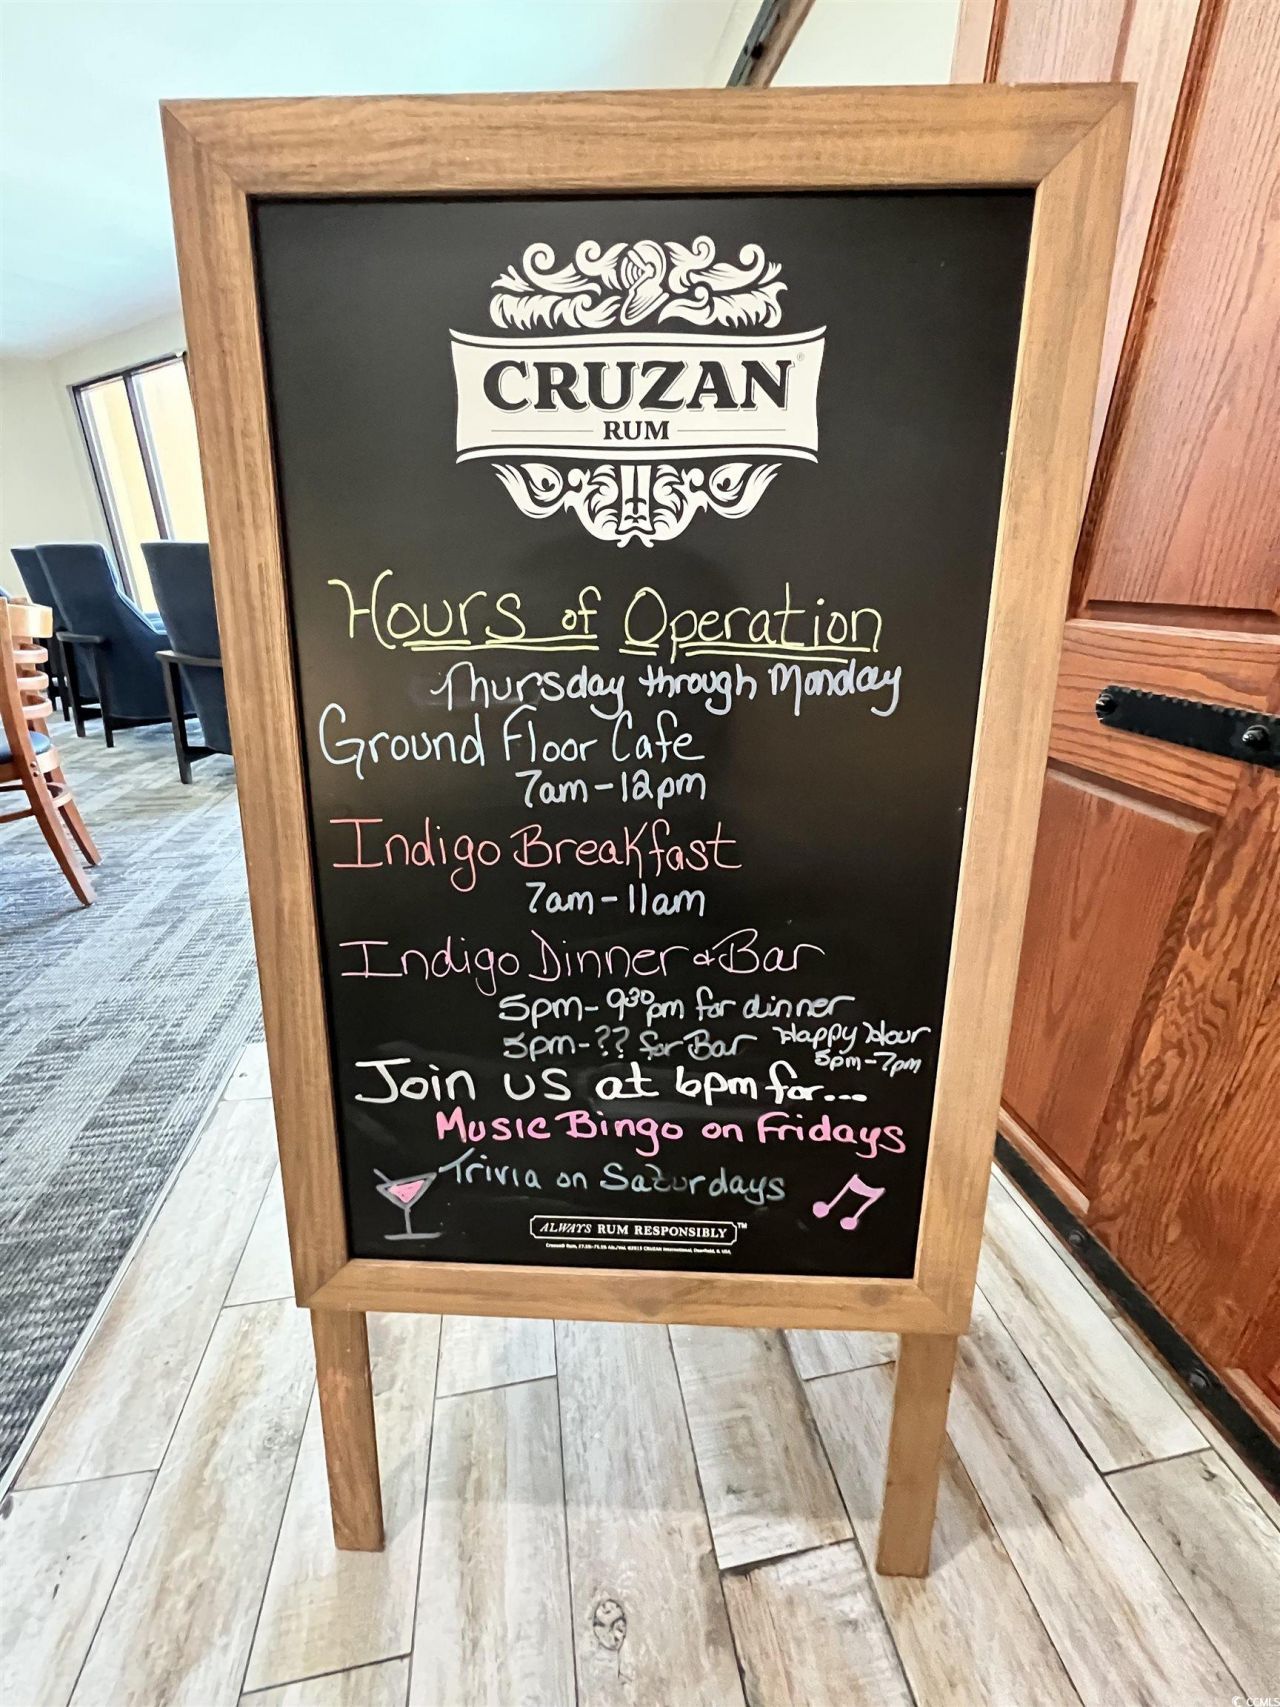 CRUZAN®
RUM
Hours of Operation
Thursday through Monday
Ground Floor Cafe
7am-12pm
Indigo Breakfast
7am-11am
Indigo Dinner & Bar
5pm-9³⁰pm for dinner
5pm-?? for Bar
Happy Hour
5pm-7pm
Join us at 6pm for...
Music Bingo on Fridays
Trivia on Saturdays
ALWAYS RUM RESPONSIBLY™
CCMLS